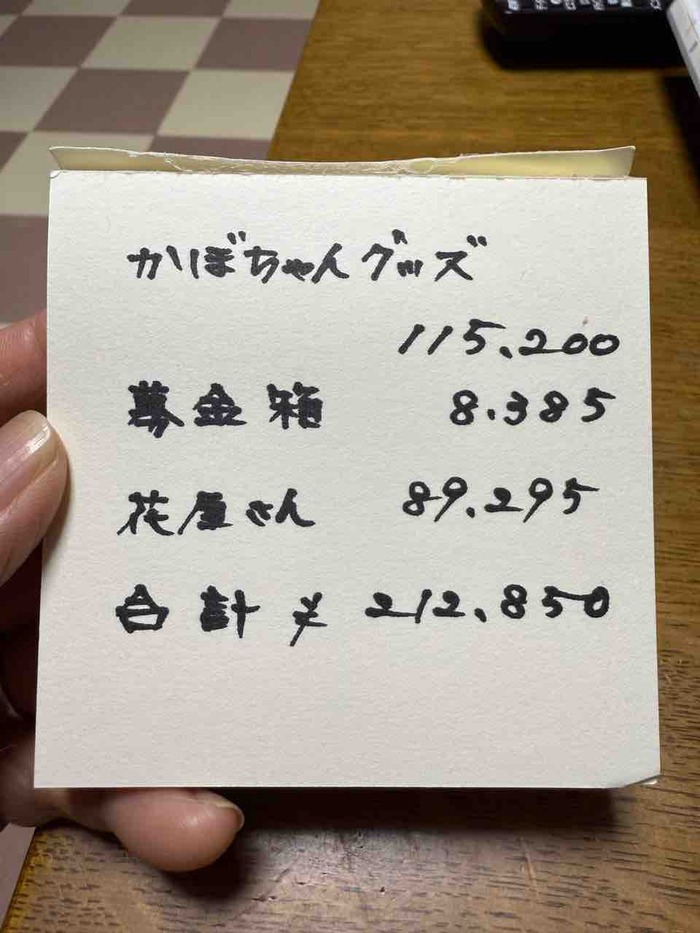 かぼちゃんグッズ
115.200
募金箱 8.385
花屋さん 89.295
合計 ¥ 212.850